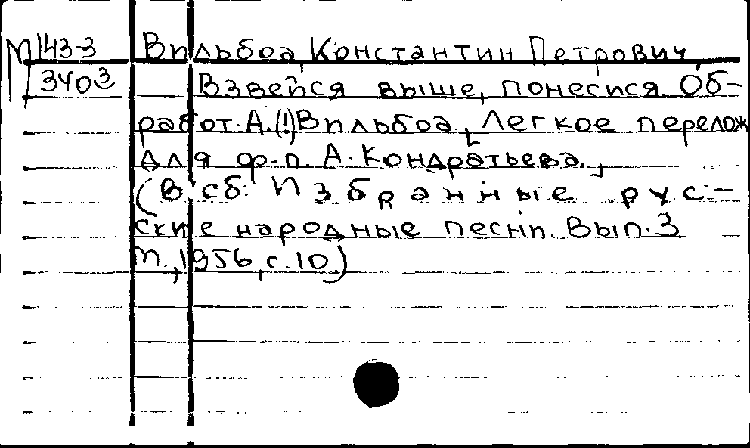 М 143-3 Вильбоа, Константин Петрович
3403 Взвейся выше, понесися. Об-
работ. А.(!) Вильбоа, [Легкое перелож
для ф.п. А. Кондратьева.,
(В сб: Избранные рус-
ские народные песни. Вып. 3
М., 1956, с. 10)